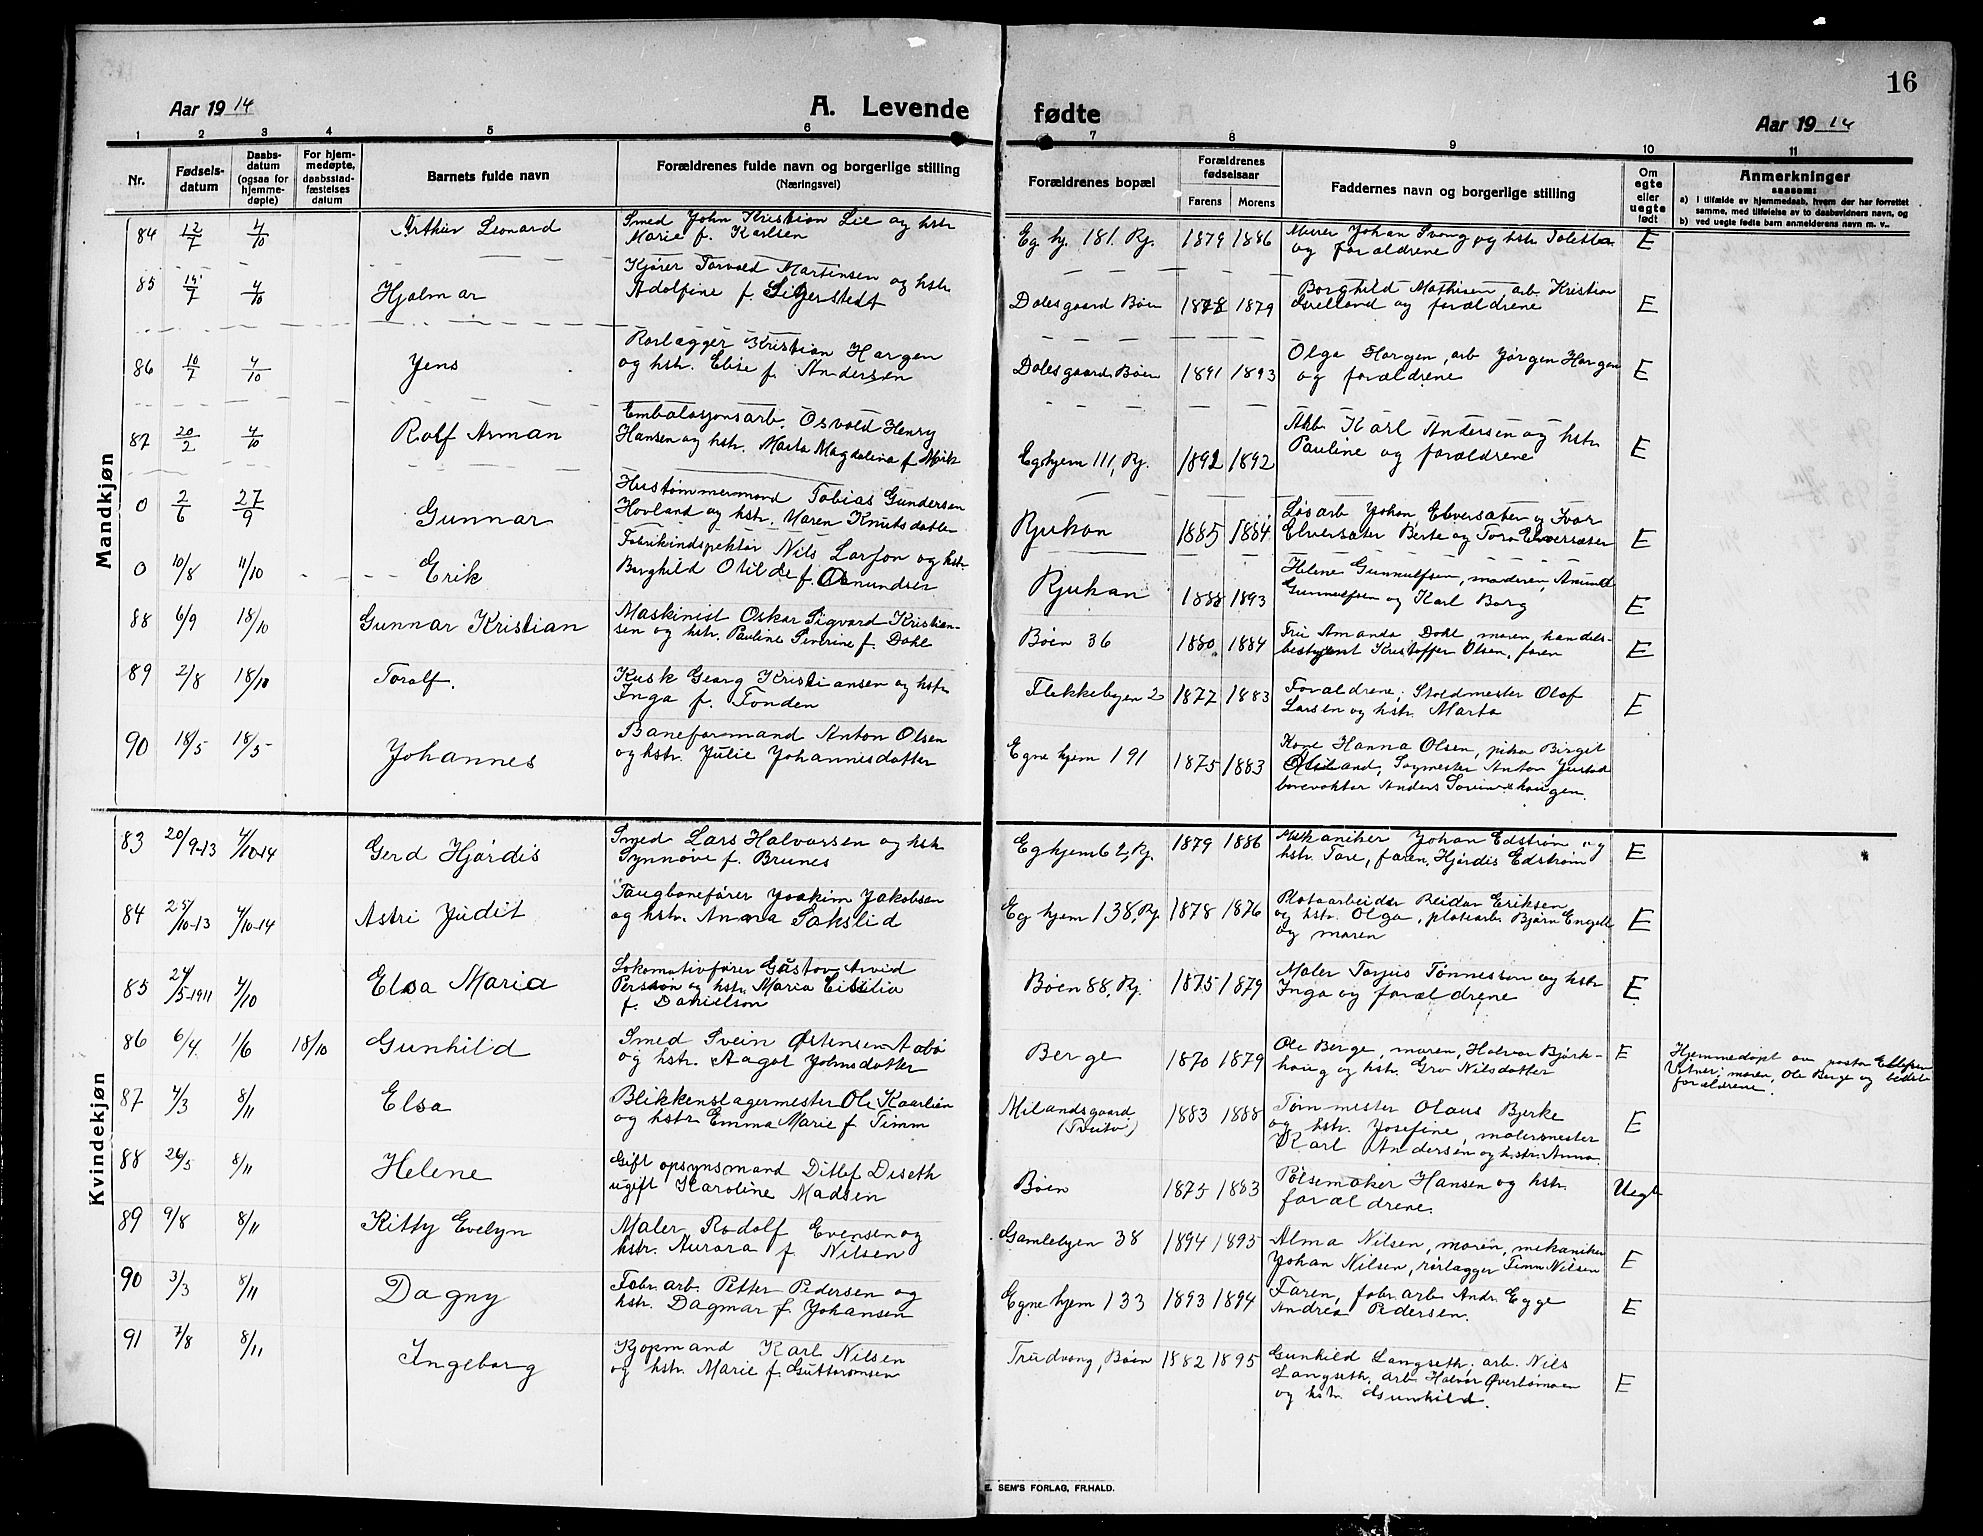 16
Aar 1914
A. Levende fødte
Aar 1914
1 2 3 4 5 6 7 8 9 10 11
Nr.
Fødsels-
datum
Daabs-
datum
(ogsaa for
hjemme-
døpte)
For hjem-
medøpte,
daabsstad-
fæstelses
datum
Barnets fulde navn
Forældrenes fulde navn og borgerlige stilling
(Næringsvei)
Forældrenes bopæl
Forældrenes
fødselsaar
Farens Morens
Faddernes navn og borgerlige stilling
Om
egte
eller
uegte
født
Anmerkninger
saasom:
a) i tilfælde av hjemmedaab, hvem der har forrettet
samme, med tilføielse av to daabsvidners navn, og
b) ved uegte fødte barn anmelderens navn m. v..
Mandkjøn
84 12/7 4/10 Arthur Leonard
Smed John Kristian Lie og hstr
Marie f. Karlsen
Eg. hj. 181. Rj. 1879 1886
Murer Johan og hstr
og forældrene
E
85 15/7 4/10 Hjalmar
Kjører Torvald Martinsen og hstr
Adolfine f. Sigerstedt
Dalesgaard Bøen 1878 1879
Borghild Mathisen arb. Kristian
og forældrene
E
86 10/7 4/10 Jens
Rørlægger Kristian Hargen
og hstr. Elise f. Andersen
Dalesgaard Bøen 1891 1893
Olga Hargen, arb Jørgen Hargen
og forældrene
E
87 20/2 4/10 Rolf Arman
Embalasjonsarb. Osvald Henry
Hansen og hstr. Marta Magdalina f.
Eg hjem 111, Rj. 1892 1892
Arb. Karl Andersen og hstr
Pauline og forældrene
E
0 2/6 27/9 Gunnar
Hustømmermand Tobias Gundersen
Hovland og hstr. Maren Knutsdatter
Rjukan 1885 1884
Løsarb Johan Elversæter og Ivar
Elversæter Berte og Tora Elversæter
E
0 10/8 11/10 Erik
Fabrikindspektør Nils Larson og hstr.
Borghild Otilde f.
Rjukan 1888 1893
Helene Gunnulfsen, moderen, Amund
Gunnulfsen og Karl Borg
E
88 6/9 18/10 Gunnar Kristian
Maskinist Oskar Sigvard Kristian-
sen og hstr. Pauline Severine f. Dahl
Bøen 36 1880 1884
Fru Amanda Dahl, moren, handels-
bestyrer Kristoffer Olsen, faren
E
89 2/8 18/10 Toralf.
Kusk Georg Kristiansen og hstr
Inga f. Tonden
Flekkebyen 2 1877 1883
Forældrene, Stoldmester Olaf
Larsen og hstr. Marta
E
90 18/5 18/5 Johannes
Baneformand Anton Olsen
og hstr. Julie Johannesdatter
Egne hjem 191 1875 1883
Kone Hanna Olsen, pike Birgit
Anton
banevokter Anders
Kvindekjøn
83 20/9-13 4/10-14 Gerd Hjørdis
Smed Lars Halvorsen og hstr
Synnøve f. Brunes
Eg hjem 62, Rj. 1879 1886
Mekaniker Johan Edstrøm og
hstr. Tore, faren, Hjørdis Edstrøm
E
84 25/10-13 4/10-14 Astri Judit
Taugbanefører Joakim Jakobsen
og hstr. Anna Sakslid
Eg hjem 138, Rj. 1878 1876
Platearbeider Reidar Eriksen
og hstr. Olga, platearb. Bjørn Engell
og moren
E
85 24/5-1911 4/10 Elsa Maria
Lokomotivfører Gustav Arvid
Person og hstr. Maria Cicilia
f. Danielson
Bøen 88, Rj. 1875 1879
Maler Torjus Tønnesson og hstr
Inga og forældrene
E
86 6/4 1/6 18/10 Gunhild
Smed Svein Østensen Aabø
og hstr. Aagot Johnsdatter
Berge 1870 1879
Ole Berge, moren, Halvor Bjørk-
haug og hstr. Gro Nilsdatter
E
Hjemmedøpt av pastor Ellefsen
Vitner: moren, Ole Berge og
forældrene.
87 4/3 8/11 Elsa
Blikkenslagermester Ole Kaarlien
og hstr Emma Marie f Timm
Milandsgaard
(Tveito) 1883 1888
Tømmester Olaus Bjerke
og hstr. Josefine, malermester
Karl Andersen og hstr. Anna.
E
88 26/5 8/11 Helene
Gift opsynsmand Ditlef Diseth
ugift Karoline Madsen
Bøen 1875 1883
Pølsemaker Hansen og hstr.
forældrene.
Uegte
89 9/8 8/11 Kitty Evelyn
Maler Rodolf Evensen og
hstr. Aurora f. Nilsen
Gamlebyen 38 1894 1895
Alma Nilsen, moren, mekaniker
Johan Nilsen, rørlægger Timm Nilsen
E
90 3/3 8/11 Dagny
Fabr. arb. Petter Pedersen og
hstr. Dagmar f. Johansen
Egne hjem 133 1893 1894
Faren, fabr. arb. Andr. Egge
Andrea Pedersen.
E
91 7/8 8/11 Ingeborg
Kjøpmand Karl Nilsen
og hstr. Marie f. Guttormsen
Trudvang, Bøen 1882 1895
Gunhild Langseth, arb. Nils
Langseth, arb. Halvor Øverbømoen
og hstr. Gunhild.
E
E. SEM'S FORLAG, FR.HALD.